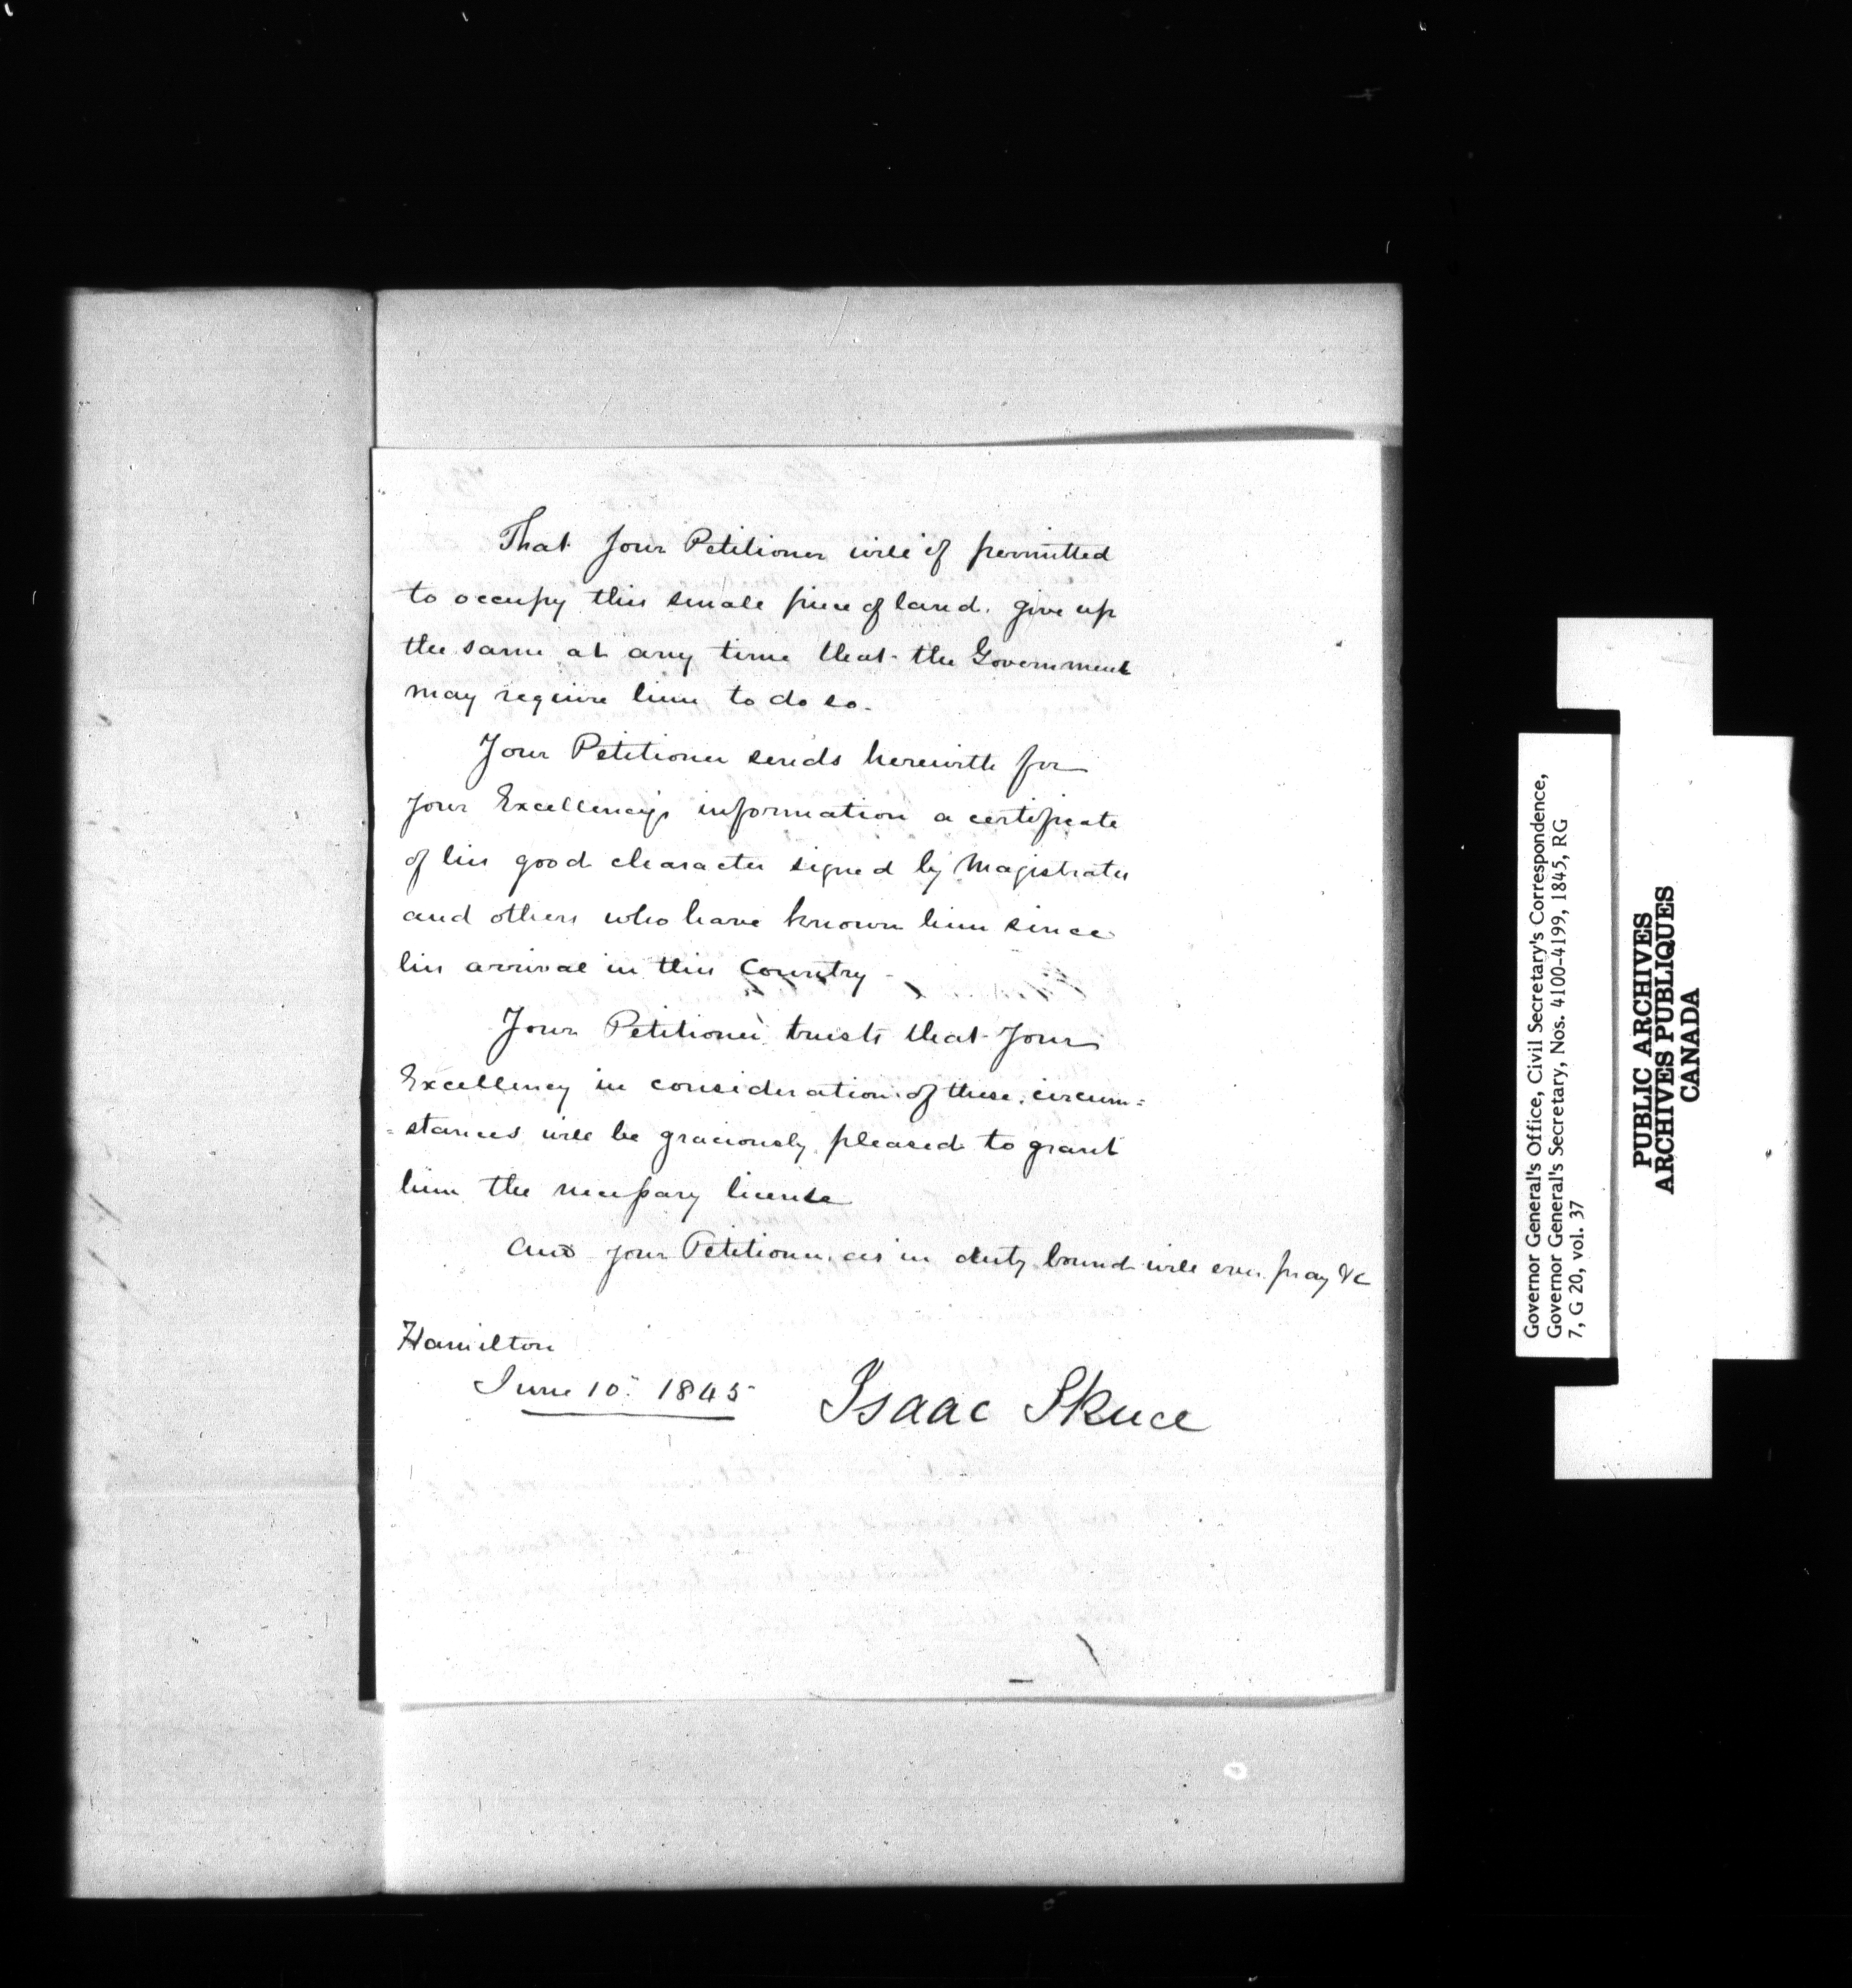 That Your Petitioner will if permitted
to occupy this small piece of land. give up
the same at any time that the Government
may require him to do so.
Your Petitioner sends herewith for
your Excellency's information a certificate
of his good character signed by Magistrates
and others who have known him since
his arrival in this Country -
Your Petitioner trusts that Your
Excellency in consideration of these circum=
=stances will be graciously pleased to grant
him the necessary license
And your Petitioner as in duty bound will ever pray &c
Hamilton
June 10. 1845
Isaac Skuce
Governor General's Office, Civil Secretary's Correspondence,
Governor General's Secretary, Nos. 4100-4199, 1845, RG
7, G 20, vol. 37
PUBLIC ARCHIVES
ARCHIVES PUBLIQUES
CANADA